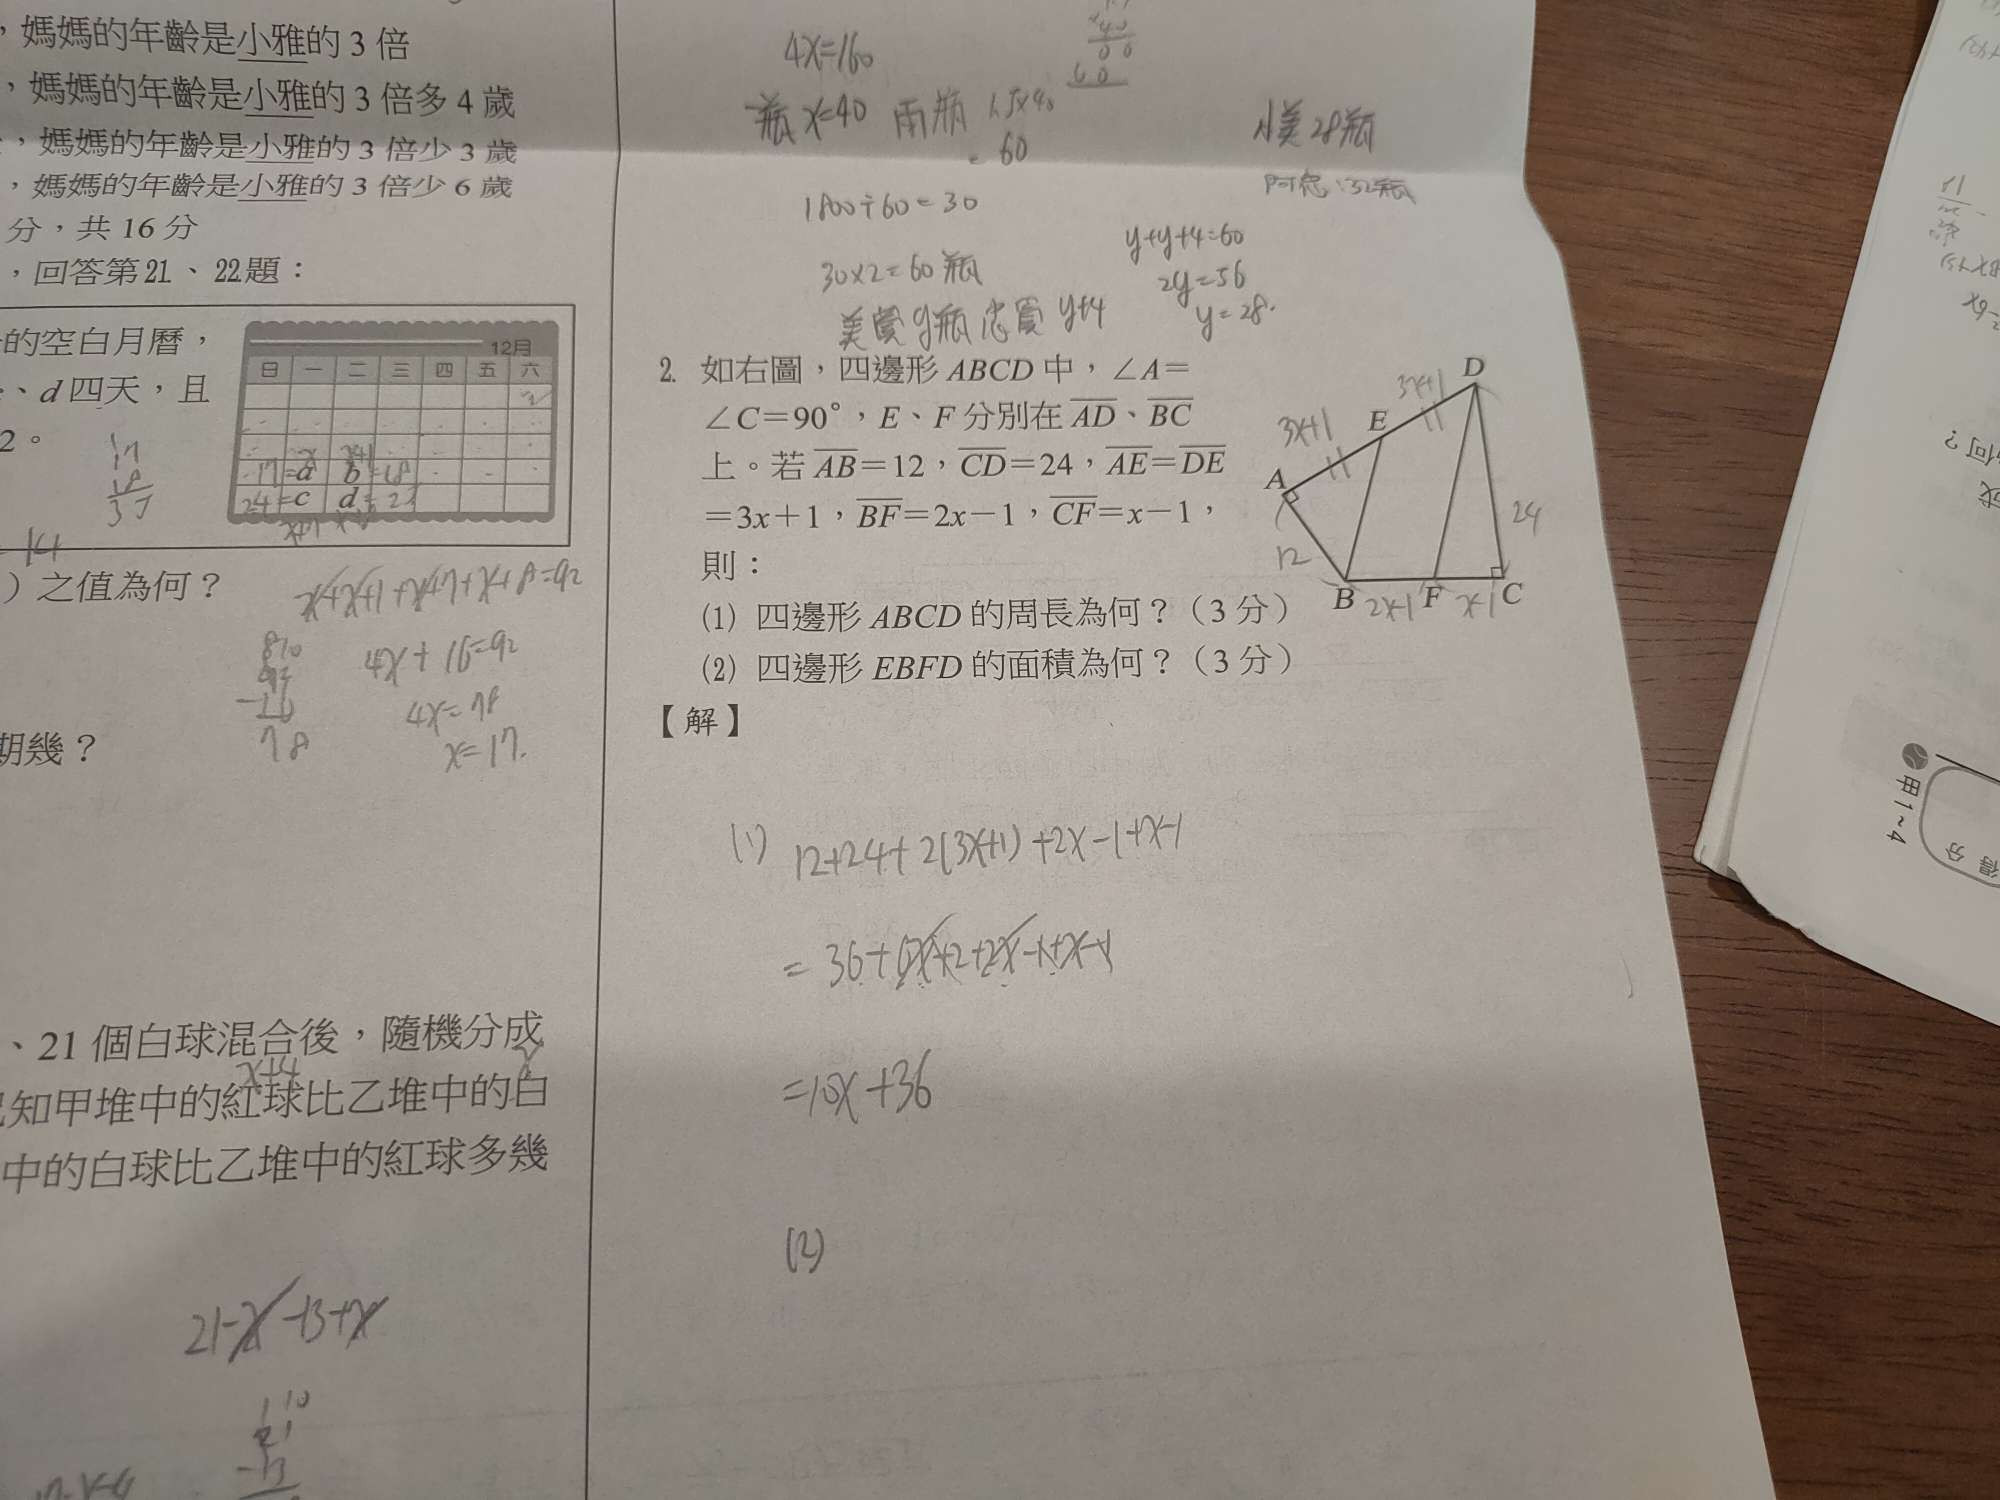 ，媽媽的年齡是小雅的 3 倍
，媽媽的年齡是小雅的 3 倍多 4 歲
，媽媽的年齡是小雅的 3 倍少 3 歲
，媽媽的年齡是小雅的 3 倍少 6 歲
分，共 16 分
，回答第 21、22 題：
的空白月曆，
、d 四天，且
2。
12月
日 一 二 三 四 五 六
x x+1
17=a b=18
24=c d=25
x+7 x+8
17
18
35
）之值為何？
x+x+1+x+7+x+8=92
4x+16=92
4x=78
x=17.
78
期幾？
、21 個白球混合後，隨機分成
x+4
知甲堆中的紅球比乙堆中的白
中的白球比乙堆中的紅球多幾
21-x-13+x
4x=160
一瓶 x=40 兩瓶 1.5x40
=60
小美 28瓶
阿忠：32瓶
1800÷60=30
30×2=60 瓶
美買 y瓶 忠買 y+4
y+y+4=60
2y=56
y=28.
2. 如右圖，四邊形 ABCD 中，∠A＝
∠C＝90°，E、F 分別在 AD、BC
上。若 AB＝12，CD＝24，AE＝DE
＝3x＋1，BF＝2x－1，CF＝x－1，
則：
⑴ 四邊形 ABCD 的周長為何？（3 分）
⑵ 四邊形 EBFD 的面積為何？（3 分）
【解】
D
3x+1
E
3x+1
A
24
12
B 2x-1 F x-1 C
(1) 12+24+2(3x+1)+2x-1+x-1
=36+6x+2+2x-1+x-1
=10x+36
(2)
何？
成
1~4
得分